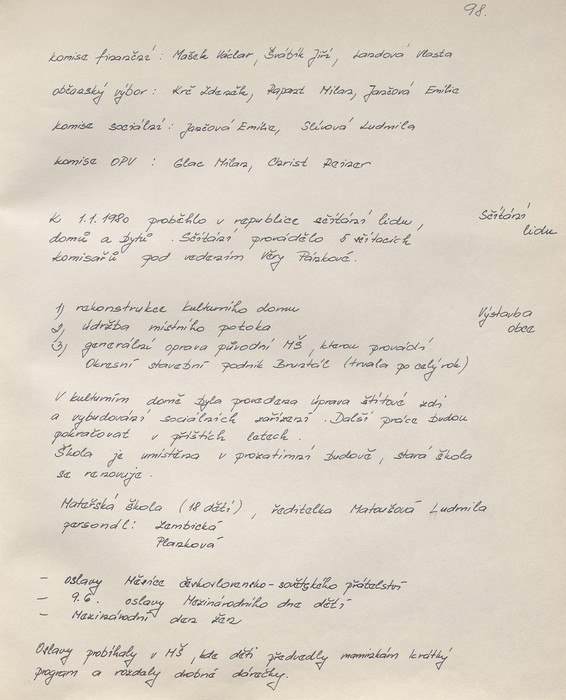 98.
komise finanční : Mašek Václav, Švábík Jiří, Landová Vlasta
občanský výbor : Krč Zdeněk, Rapant Milan, Jančová Emilie
komise sociální : Jančová Emilie, Slívová Ludmila
komise OPV : Glac Milan, Christ Reiner
K 1.1.1980 proběhlo v republice sčítání lidu,
domů a bytů. Sčítání provádělo 5 sčítacích
komisařů pod vedením Věry Pánkové.
Sčítání
lidu
1) rekonstrukce kulturního domu
2) údržba místního potoka
3) generální oprava původní MŠ, kterou provádí
Okresní stavební podnik Bruntál (trvala po celý rok)
Výstavba
obce
V kulturním domě byla provedena úprava štítové zdi
a vybudování sociálních zařízení. Další práce budou
pokračovat v příštích letech.
Škola je umístěna v prozatimní budově, stará škola
se renovuje.
Mateřská škola (18 dětí), ředitelka Matoušová Ludmila
personál: Zembická
Planková
- oslavy Měsíce československo-sovětského přátelství
- 9.6. oslavy Mezinárodního dne dětí
- Mezinárodní den žen
Oslavy probíhaly v MŠ, kde děti předvedly maminkám krátký
program a rozdaly drobné dárečky.